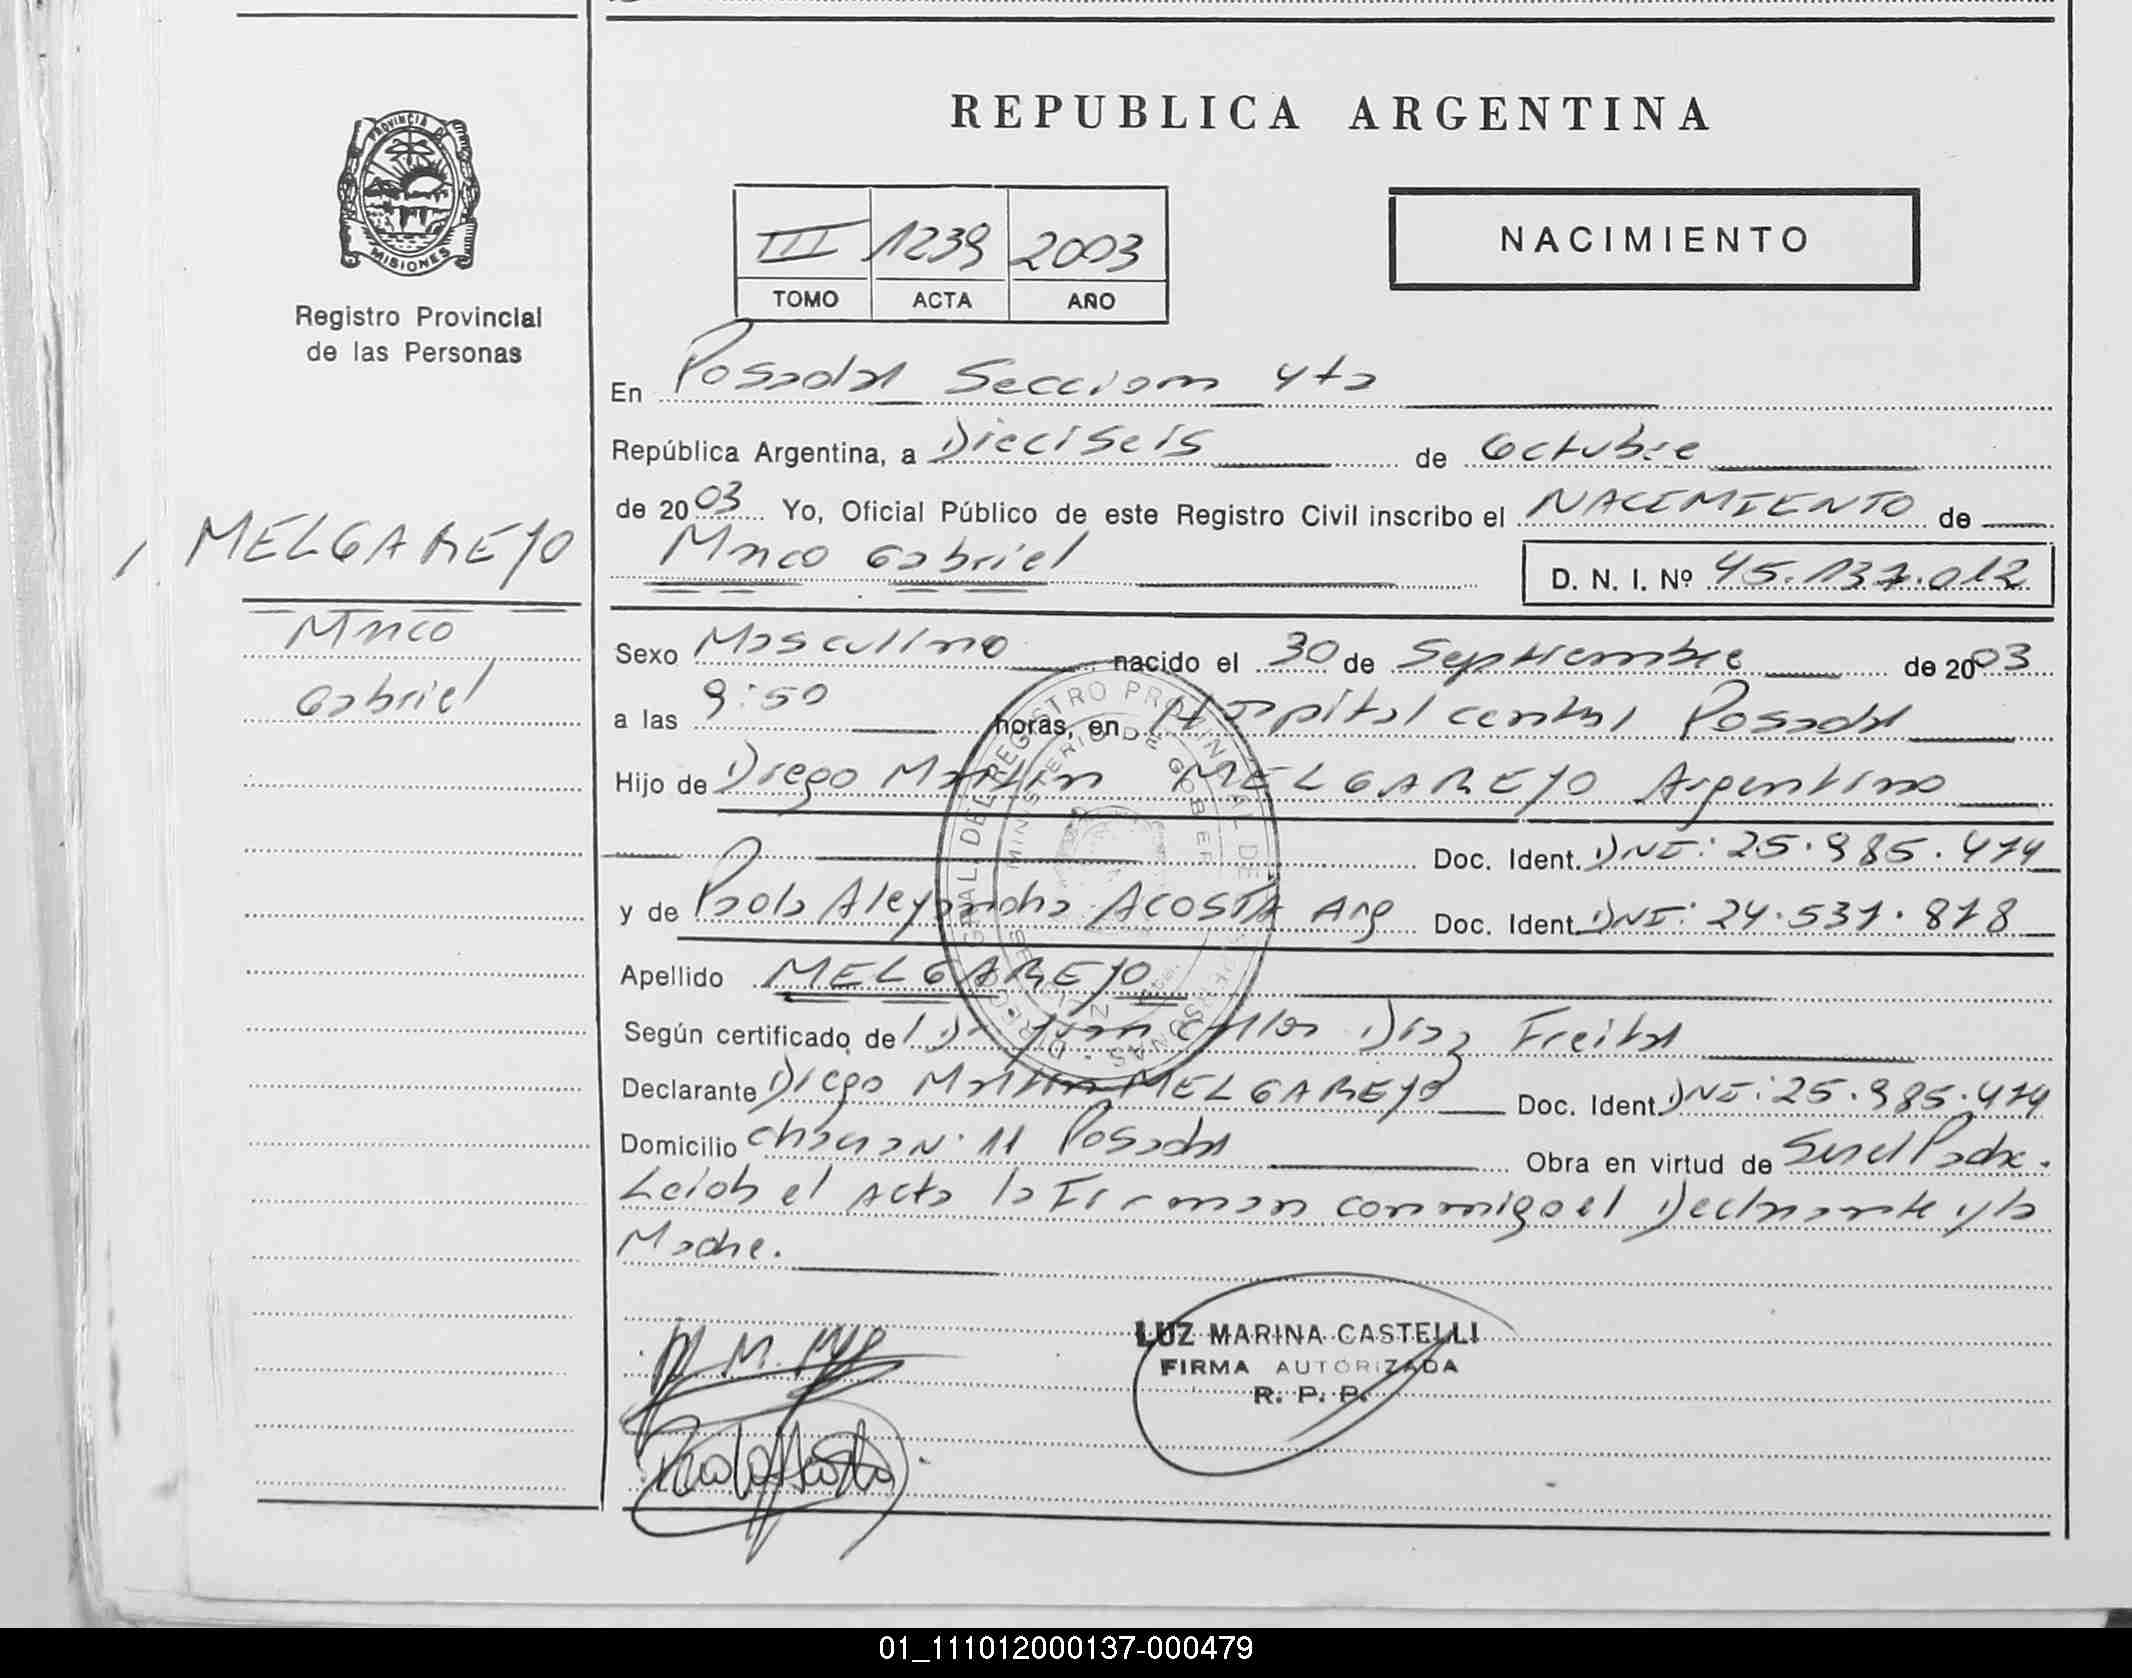 REPUBLICA ARGENTINA
PROVINCIA DE
MISIONES
Registro Provincial
de las Personas
III 1239 2003
TOMO ACTA AÑO
NACIMIENTO
En Posadas Seccion 4ta
República Argentina, a Dieciseis de Octubre
de 2003 Yo, Oficial Público de este Registro Civil inscribo el NACIMIENTO de
Marco Gabriel D. N. I. Nº 45.137.012
MELGAREJO
Marco
Gabriel
Sexo Masculino nacido el 30 de Septiembre de 2003
a las 9:50 horas, en Hospital central Posadas
Hijo de Diego Martin MELGAREJO Argentino
Doc. Ident. DNI: 25.985.474
y de Paola Alejandra ACOSTA Arg Doc. Ident. DNI: 24.537.878
Apellido MELGAREJO
Según certificado de Dr Juan Carlos Diaz Freitas
Declarante Diego Martin MELGAREJO Doc. Ident. DNI: 25.985.474
Domicilio Chacra N° 11 Posadas Obra en virtud de Ser el Padre.
Leida el Acta la Firman conmigo el Declarante y la
Madre.
LUZ MARINA CASTELLI
FIRMA AUTORIZADA
R. P. P.
Paola Acosta
01_111012000137-000479